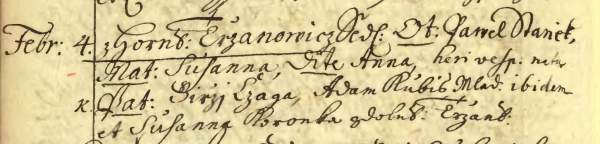 Febr: 4. z Horns: Erzanowicz Sedl: Ot: Pawel Staniek,
Mat: Susanna, Dite Anna, heri vesp: nata
K. Pat: Girzj Czaga, Adam Kubis Mlad: ibidem
et Susanna Kronka z dolns: Erzans: